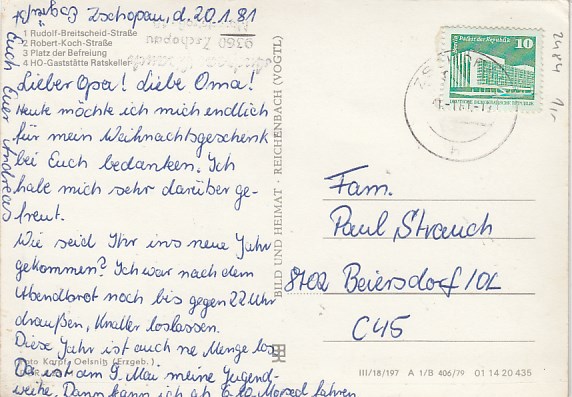 Zschopau, d. 20.1.81
1 Rudolf-Breitscheid-Straße
2 Robert-Koch-Straße
3 Platz der Befreiung
4 HO-Gaststätte Ratskeller
9360 Zschopau
Lieber Opa! Liebe Oma!
Heute möchte ich mich endlich
für mein Weihnachtsgeschenk
bei Euch bedanken. Ich
habe mich sehr darüber ge-
freut.
Wie seid Ihr ins neue Jahr
gekommen? Ich war nach dem
Abendbrot noch bis gegen 22 Uhr
draußen, Knaller loslassen.
Diese Jahr ist auch ne Menge los
Da ist am 9. Mai meine Jugend-
weihe. Dann kann ich ab 6.10. Moped fahren
Euch Euer Andreas
Foto Karpf, Oelsnitz (Erzgeb.)
BILD UND HEIMAT · REICHENBACH (VOGTL)
Palast der Republik
10
DEUTSCHE DEMOKRATISCHE REPUBLIK
2484
Fam.
Paul Strauch
8702 Beiersdorf/OL
C45
III/18/197 A 1/B 406/79 01 14 20 435